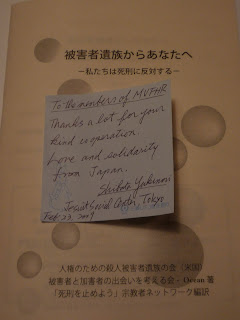 被害者遺族からあなたへ
―私たちは死刑に反対する―
To the members of MVFHR
Thanks a lot for your
kind cooperation
Love and solidarity
from Japan.
Shibata Yukinori
Jesuit Social Center, Tokyo
Feb 23, 2009
人権のための殺人被害者遺族の会(米国)
被害者と加害者の出会いを考える会―Ocean 著
「死刑を止めよう」宗教者ネットワーク編訳